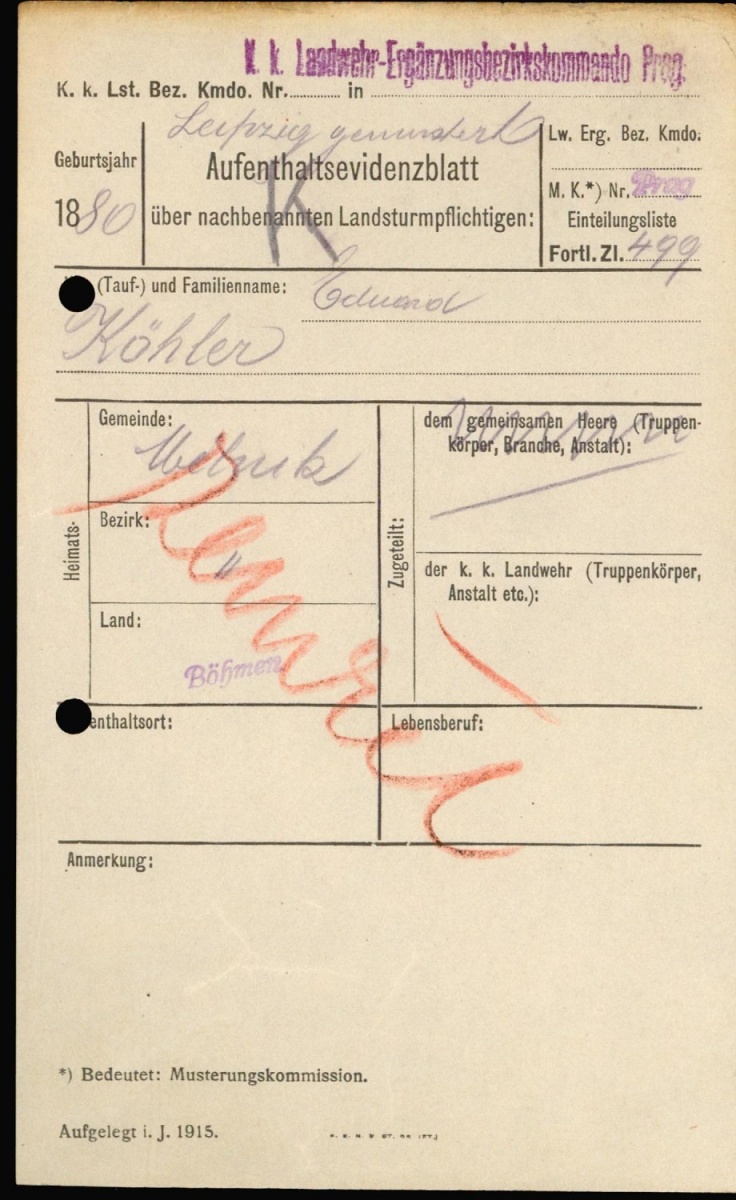 K. k. Landwehr-Ergänzungsbezirkskommando Prag.
K. k. Lst. Bez. Kmdo. Nr. in
Leipzig gemustert
Lw. Erg. Bez. Kmdo.
Geburtsjahr
1880
Aufenthaltsevidenzblatt
über nachbenannten Landsturmpflichtigen:
K
M. K.*) Nr. Prag
Einteilungsliste
Fortl. Zl. 499
(Tauf-) und Familienname: Eduard
Köhler
Heimats-
Gemeinde:
Melnik
Bezirk:
"
Land:
Böhmen
Zugeteilt:
dem gemeinsamen Heere (Truppen-
körper, Branche, Anstalt):
der k. k. Landwehr (Truppenkörper,
Anstalt etc.):
enthaltsort:
Lebensberuf:
Anmerkung:
*) Bedeutet: Musterungskommission.
Aufgelegt i. J. 1915.